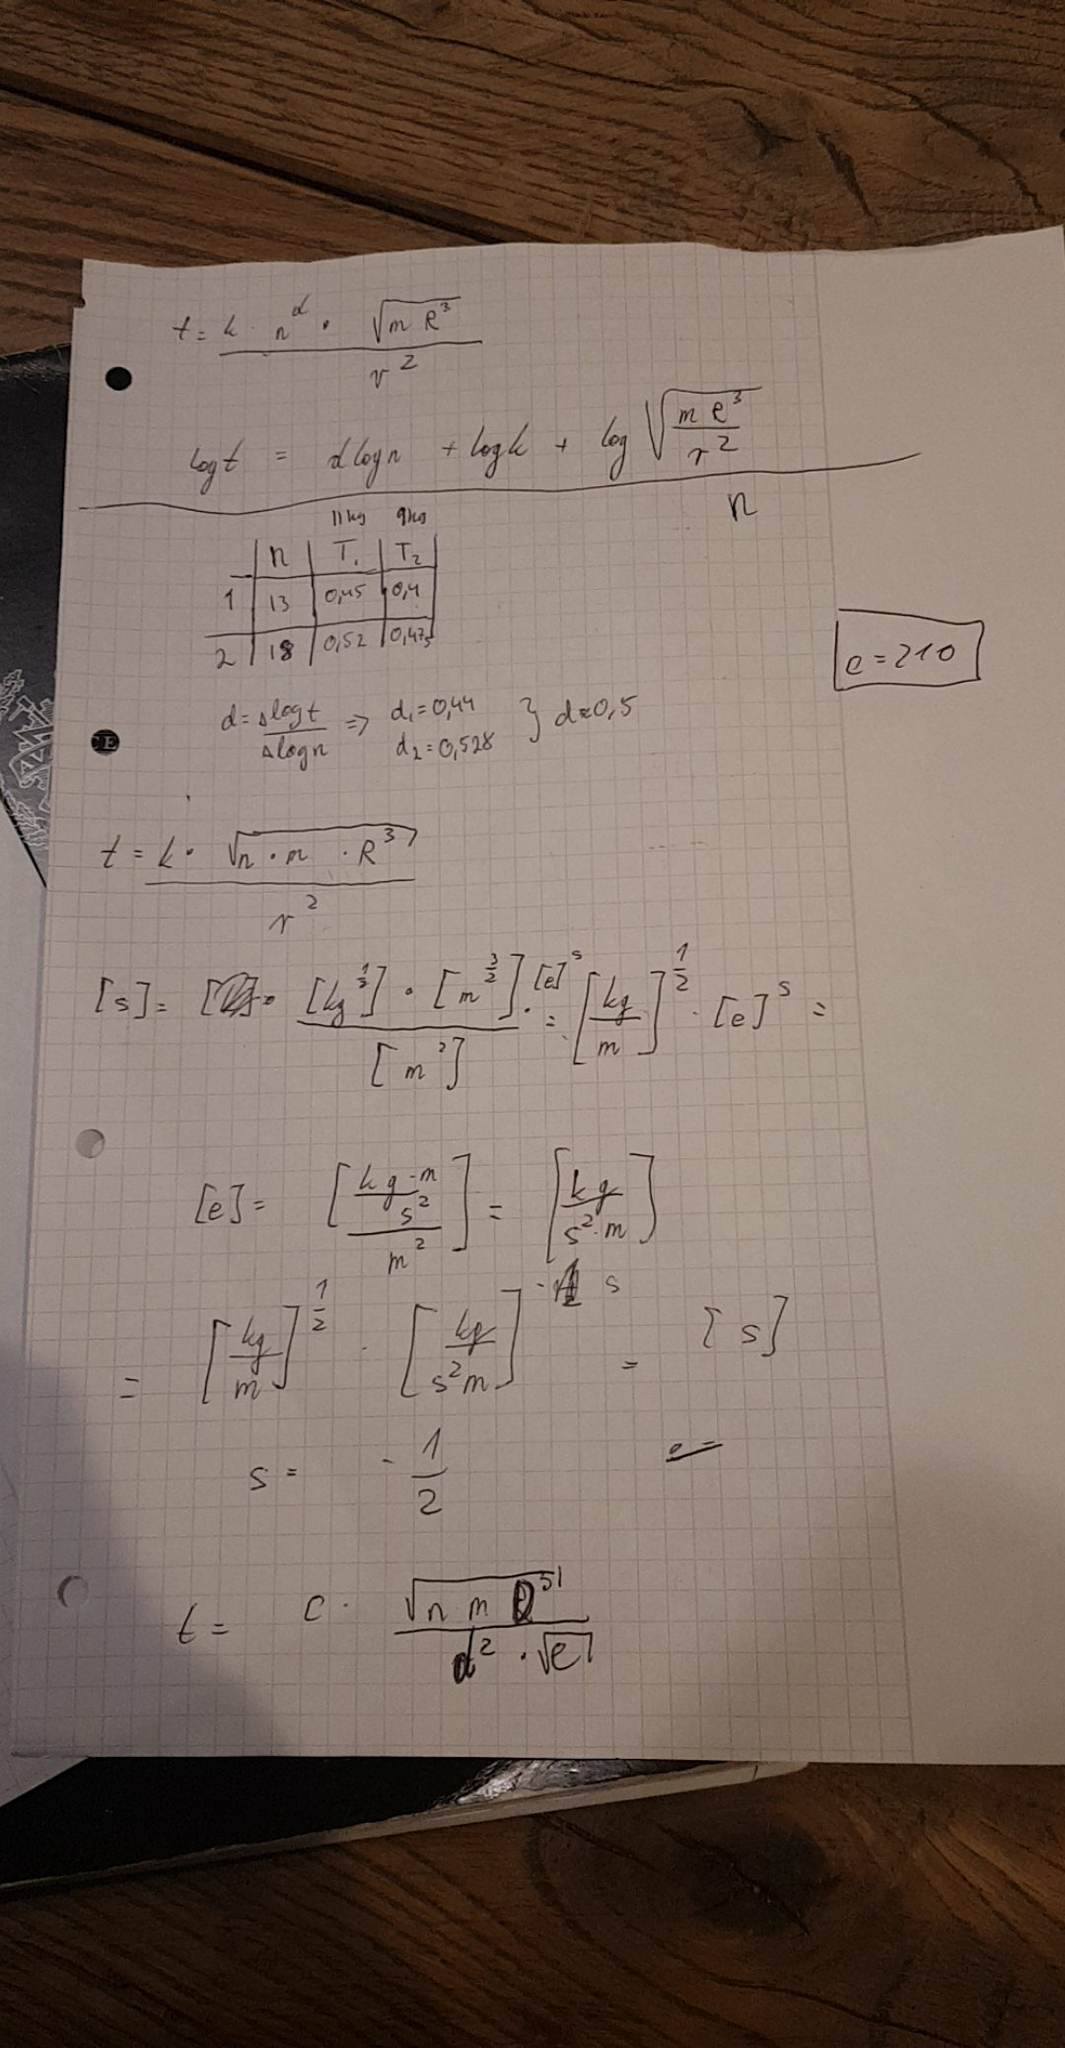 t = k · n^α · √(m R³) / r²
log t = α log n + log k + log √(m R³ / r²)
n
11kg 9kg
n T₁ T₂
1 13 0,45 0,4
2 18 0,52 0,475
e = 210
α = Δlog t / Δlog n => α₁ = 0,44 } α ≈ 0,5
α₂ = 0,528
CE
t = k · √(n · m · R³) / r²
[s] = · [kg^(1/2)] · [m^(3/2)] · [e]^s / [m²] = [kg / m]^(1/2) · [e]^s =
[e] = [(kg · m / s²) / m²] = [kg / s² · m]
= [kg / m]^(1/2) · [kg / s² m]^s = [s]
s = - 1/2
t = c · √(n m l³) / d² · √e